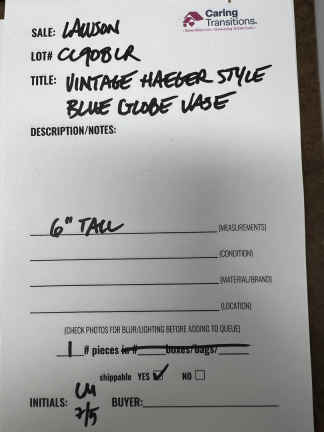 Caring
Transitions.
SALE: LAWSON
LOT# CL90BLR
TITLE: VINTAGE HAEGER STYLE
BLUE GLOBE VASE
DESCRIPTION/NOTES:
6" TALL (MEASUREMENTS)
(CONDITION)
(MATERIAL/BRAND)
(LOCATION)
(CHECK PHOTOS FOR BLUR/LIGHTING BEFORE ADDING TO QUEUE)
1 # pieces in # boxes/bags/
shippable YES NO
INITIALS: BUYER:
7/5